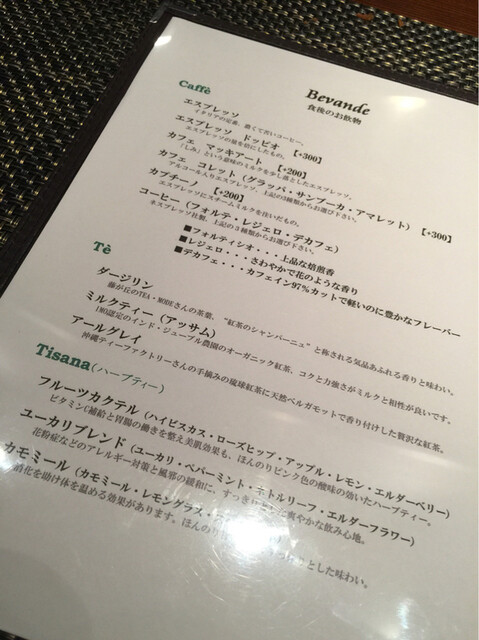 Bevande
食後のお飲物
Caffè
エスプレッソ
イタリアの定番、濃くて苦いコーヒー。
エスプレッソ ドッピオ 【+300】
エスプレッソの量を倍にしたもの。
カフェ マッキアート 【+200】
「しみ」という意味のミルクを少し落としたエスプレッソ。
カフェ コレット（グラッパ・サンブーカ・アマレット）【+300】
アルコール入りエスプレッソ。上記の3種類からお選び下さい。
カプチーノ 【+200】
エスプレッソにスチームミルクを注いだもの。
コーヒー（フォルテ・レジェロ・デカフェ）
ネスプレッソ社製。上記の３種類からお選び下さい。
■フォルティシオ・・・上品な焙煎香
■レジェロ・・・さわやかで花のような香り
■デカフェ・・・カフェイン97％カットで軽いのに豊かなフレーバー
Tè
ダージリン
藤が丘のTEA・MODEさんの茶葉、“紅茶のシャンパーニュ”と称される気品あふれる香りと味わい。
ミルクティー（アッサム）
IMO認定のインド・ジュープル農園のオーガニック紅茶、コクと力強さがミルクと相性が良いです。
アールグレイ
沖縄ティーファクトリーさんの手摘みの琉球紅茶に天然ベルガモットで香り付けした贅沢な紅茶。
Tisana（ハーブティー）
フルーツカクテル（ハイビスカス・ローズヒップ・アップル・レモン・エルダーベリー）
ビタミンC補給と胃腸の働きを整え美肌効果も、ほんのりピンク色の酸味の効いたハーブティー。
ユーカリブレンド（ユーカリ・ペパーミント・ネトルリーフ・エルダーフラワー）
花粉症などのアレルギー対策と風邪の緩和に、すっきりとした爽やかな飲み心地。
カモミール（カモミール・レモングラス・
消化を助け体を温める効果があります。ほんのり とした味わい。